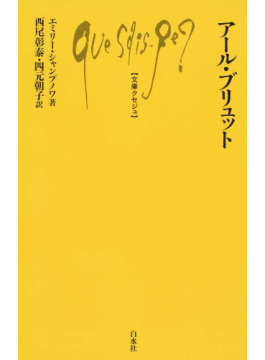 アール・ブリュット
Que sais-je?
【文庫クセジュ】
エミリー・シャンプノワ著
西尾彰泰・四元朝子訳
白水社